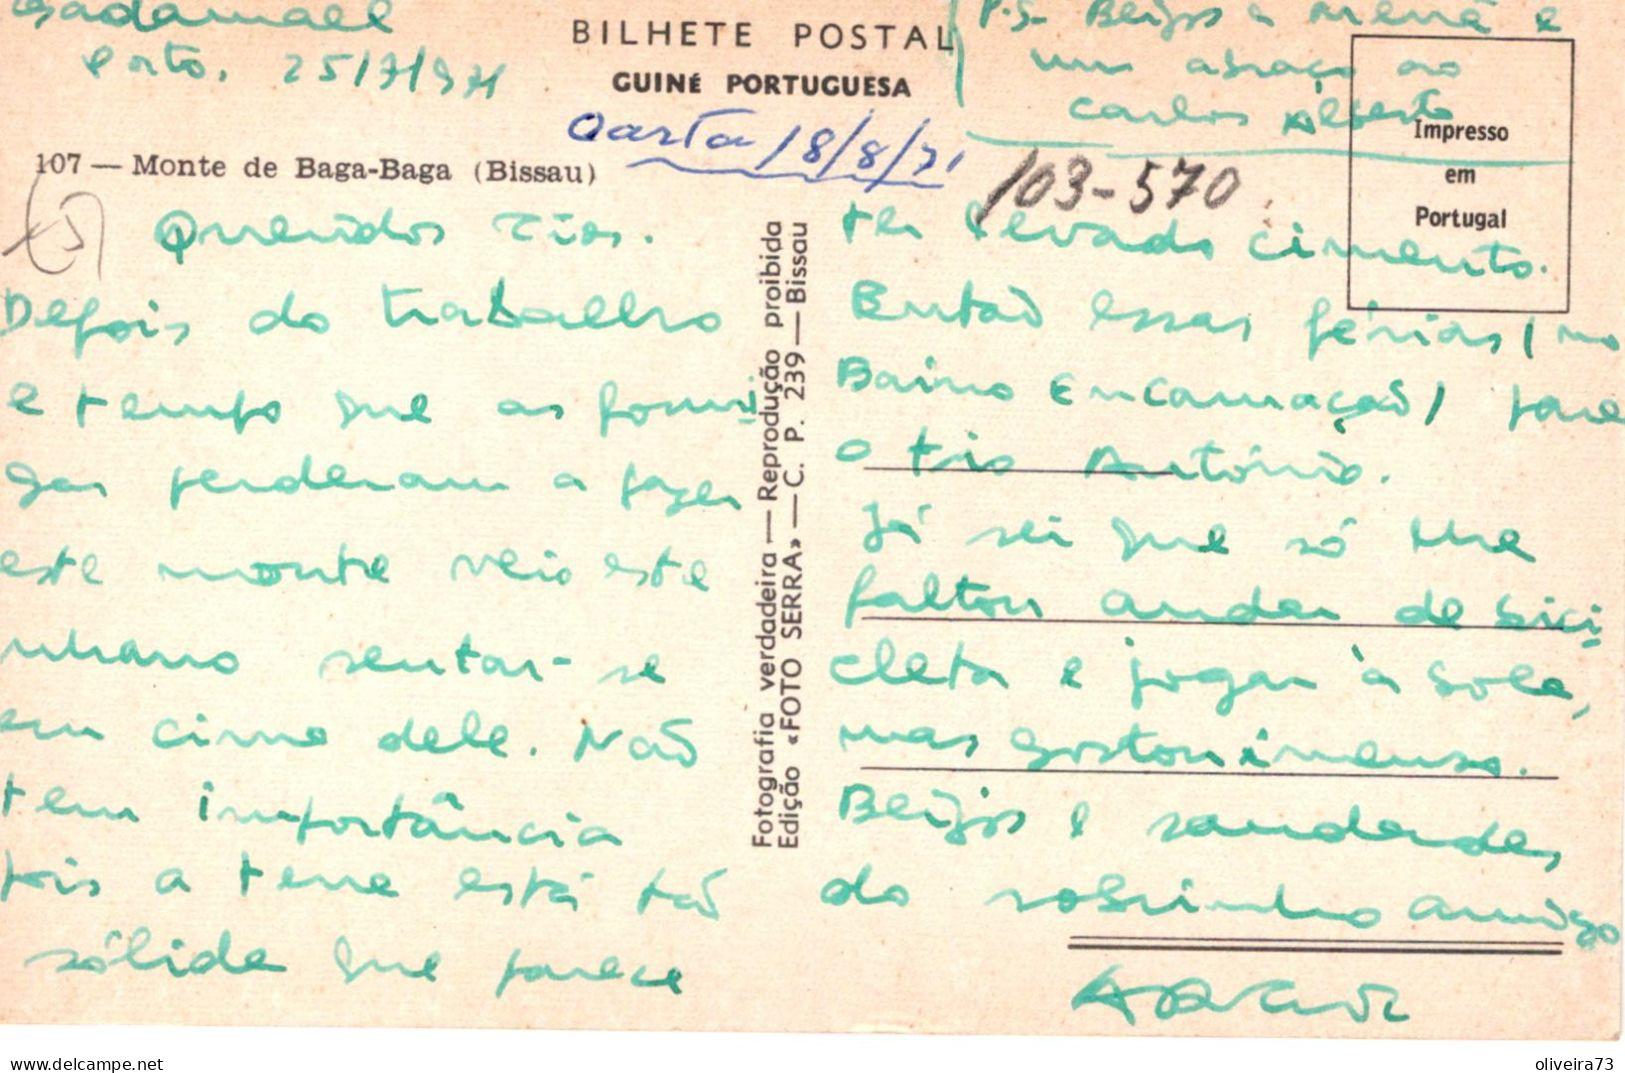 Gadamael
Porto, 25/7/971
BILHETE POSTAL
GUINÉ PORTUGUESA
P.S. Beijos a Mené e
um abraço ao
Carlos Alberto
Impresso
em
Portugal
Carta 18/8/71
103-570
107 — Monte de Baga-Baga (Bissau)
Queridos Tios.
Depois do trabalho
e tempo que as formi
gas perderam a fazer
este monte veio este
mano sentar-se
em cima dele. Não
tem importância
pois a terra está tão
sólida que parece
Fotografia verdadeira — Reprodução proibida
Edição «FOTO SERRA» — C. P. 239 — Bissau
ter levado cimento.
Então essas férias (no
Bairro Encarnação) para
o tio António.
Já sei que só lhe
faltou andar de bici-
cleta e jogar à bola,
mas gostou imenso.
Beijos e saudades
do sobrinho amigo
delcampe.net
oliveira73